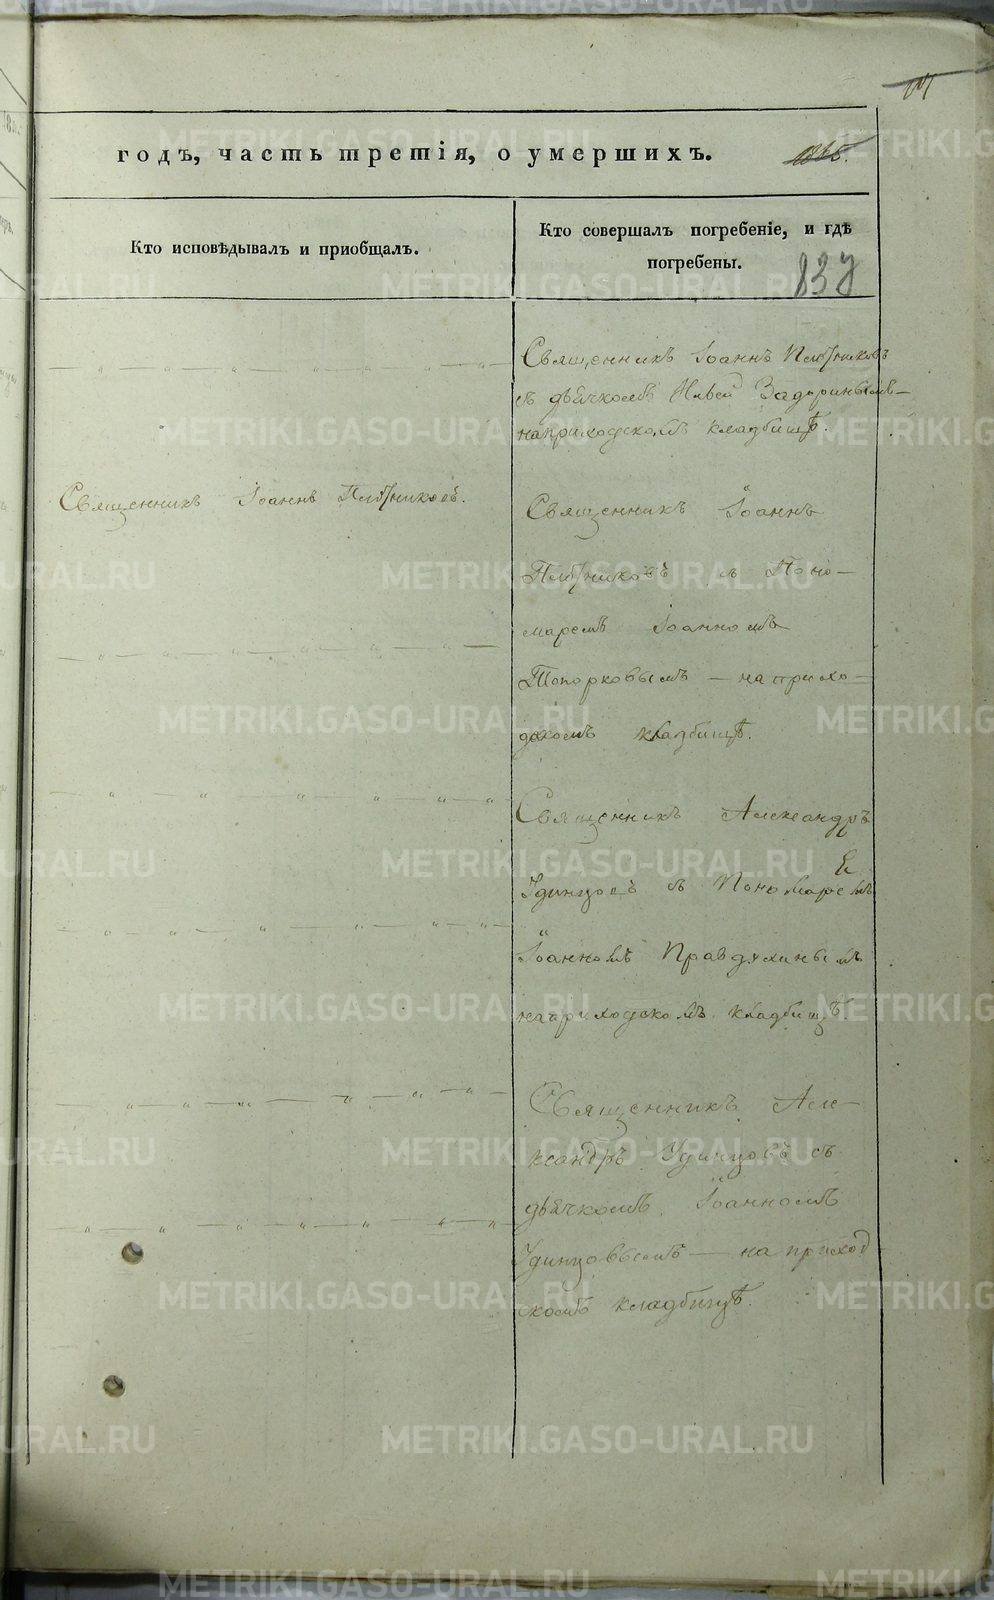 годъ, часть третія, о умершихъ.
Кто исповѣдывалъ и приобщалъ.
Кто совершалъ погребеніе, и гдѣ
погребены.
837
Священникъ Іоаннъ Плотниковъ
съ дьячкомъ Задоринымъ
на приходскомъ кладбищѣ.
Священникъ Іоаннъ Плотниковъ.
Священникъ Іоаннъ
Плотниковъ съ Поно-
маремъ Іоанномъ
Топорковымъ — на прихо-
дскомъ кладбищѣ.
Священникъ Александръ
Удинцовъ съ Пономаремъ
Іоанномъ Правдухинымъ
на приходскомъ кладбищѣ
Священникъ Але-
ксандръ Удинцовъ съ
дьячкомъ Іоанномъ
Удинцовымъ — на приход
скомъ кладбищѣ.
METRIKI.GASO-URAL.RU